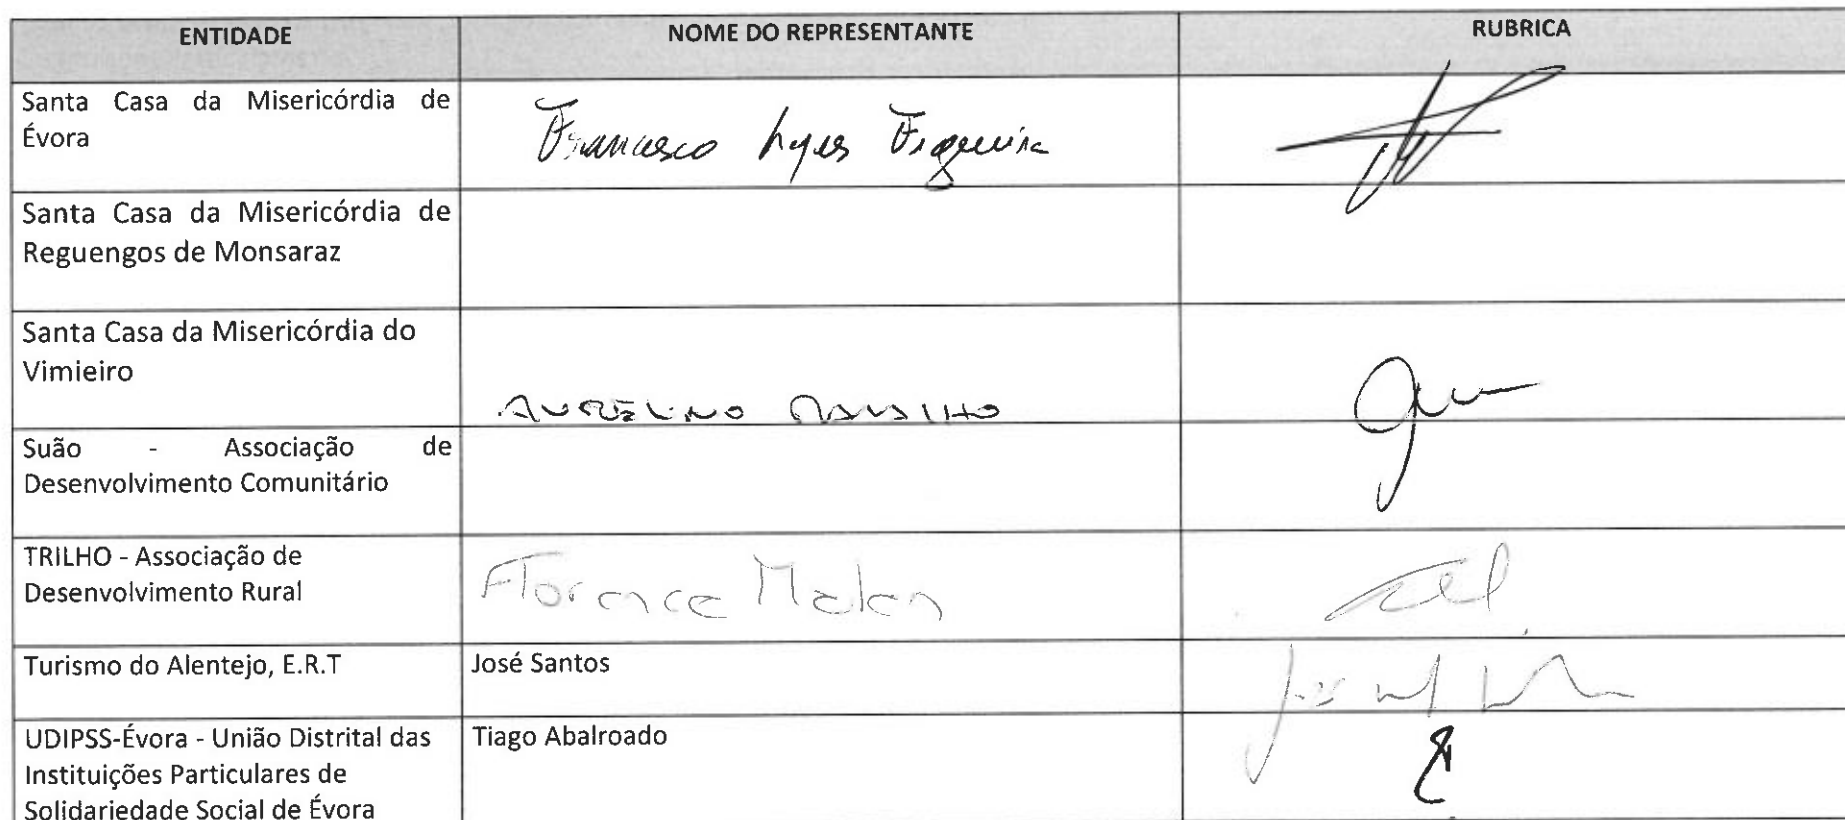 ENTIDADE NOME DO REPRESENTANTE RUBRICA
Santa Casa da Misericórdia de
Évora
Francisco Lopes Figueira
Santa Casa da Misericórdia de
Reguengos de Monsaraz
Santa Casa da Misericórdia do
Vimieiro
AURELINO RAMALHO
Suão - Associação de
Desenvolvimento Comunitário
TRILHO - Associação de
Desenvolvimento Rural
Florence
Turismo do Alentejo, E.R.T José Santos
UDIPSS-Évora - União Distrital das Tiago Abalroado
Instituições Particulares de
Solidariedade Social de Évora